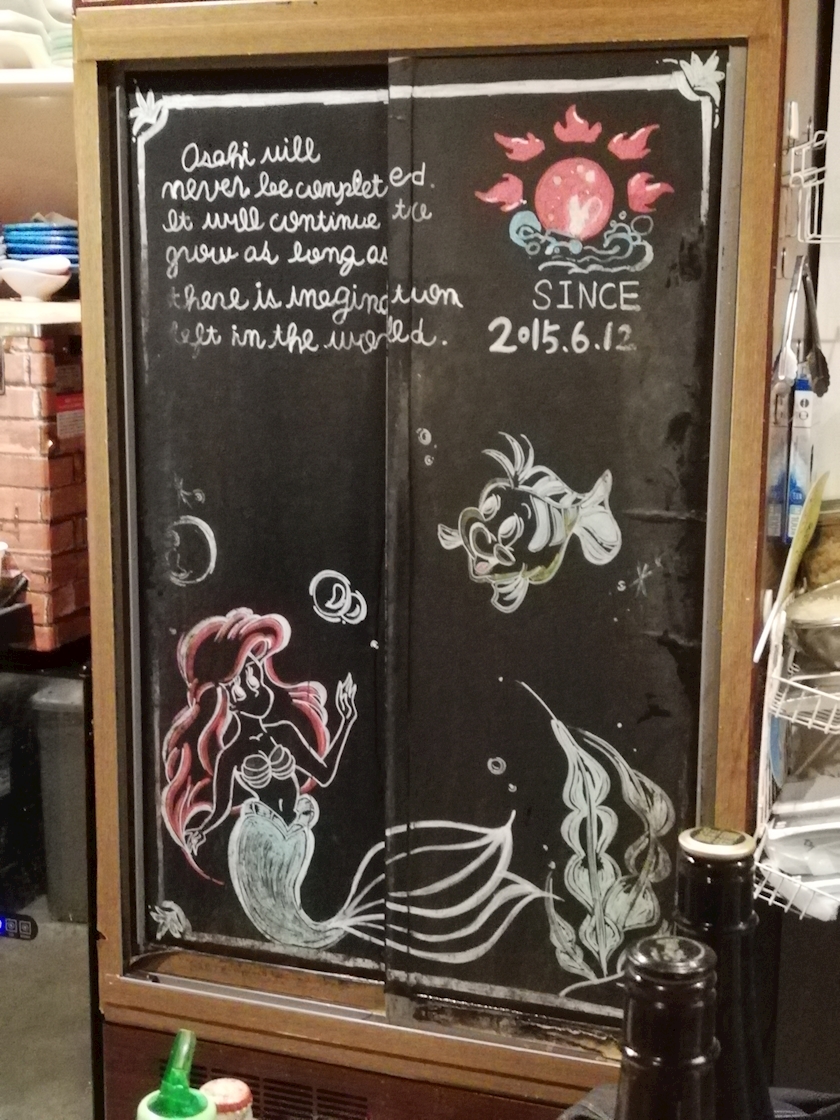 Asahi will
never be completed.
It will continue to
grow as long as
there is imagination
left in the world.
SINCE
2015.6.12